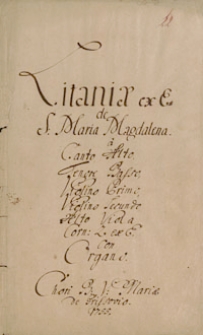 Litaniæ ex E
de
S. Maria Magdalena.
à
Canto Alto.
Tenore Basso.
Violino Primo.
Violino Secundo.
Alto Viola.
Corni 2. ex E.
Con
Organo.
Chori B. V. Mariæ
de